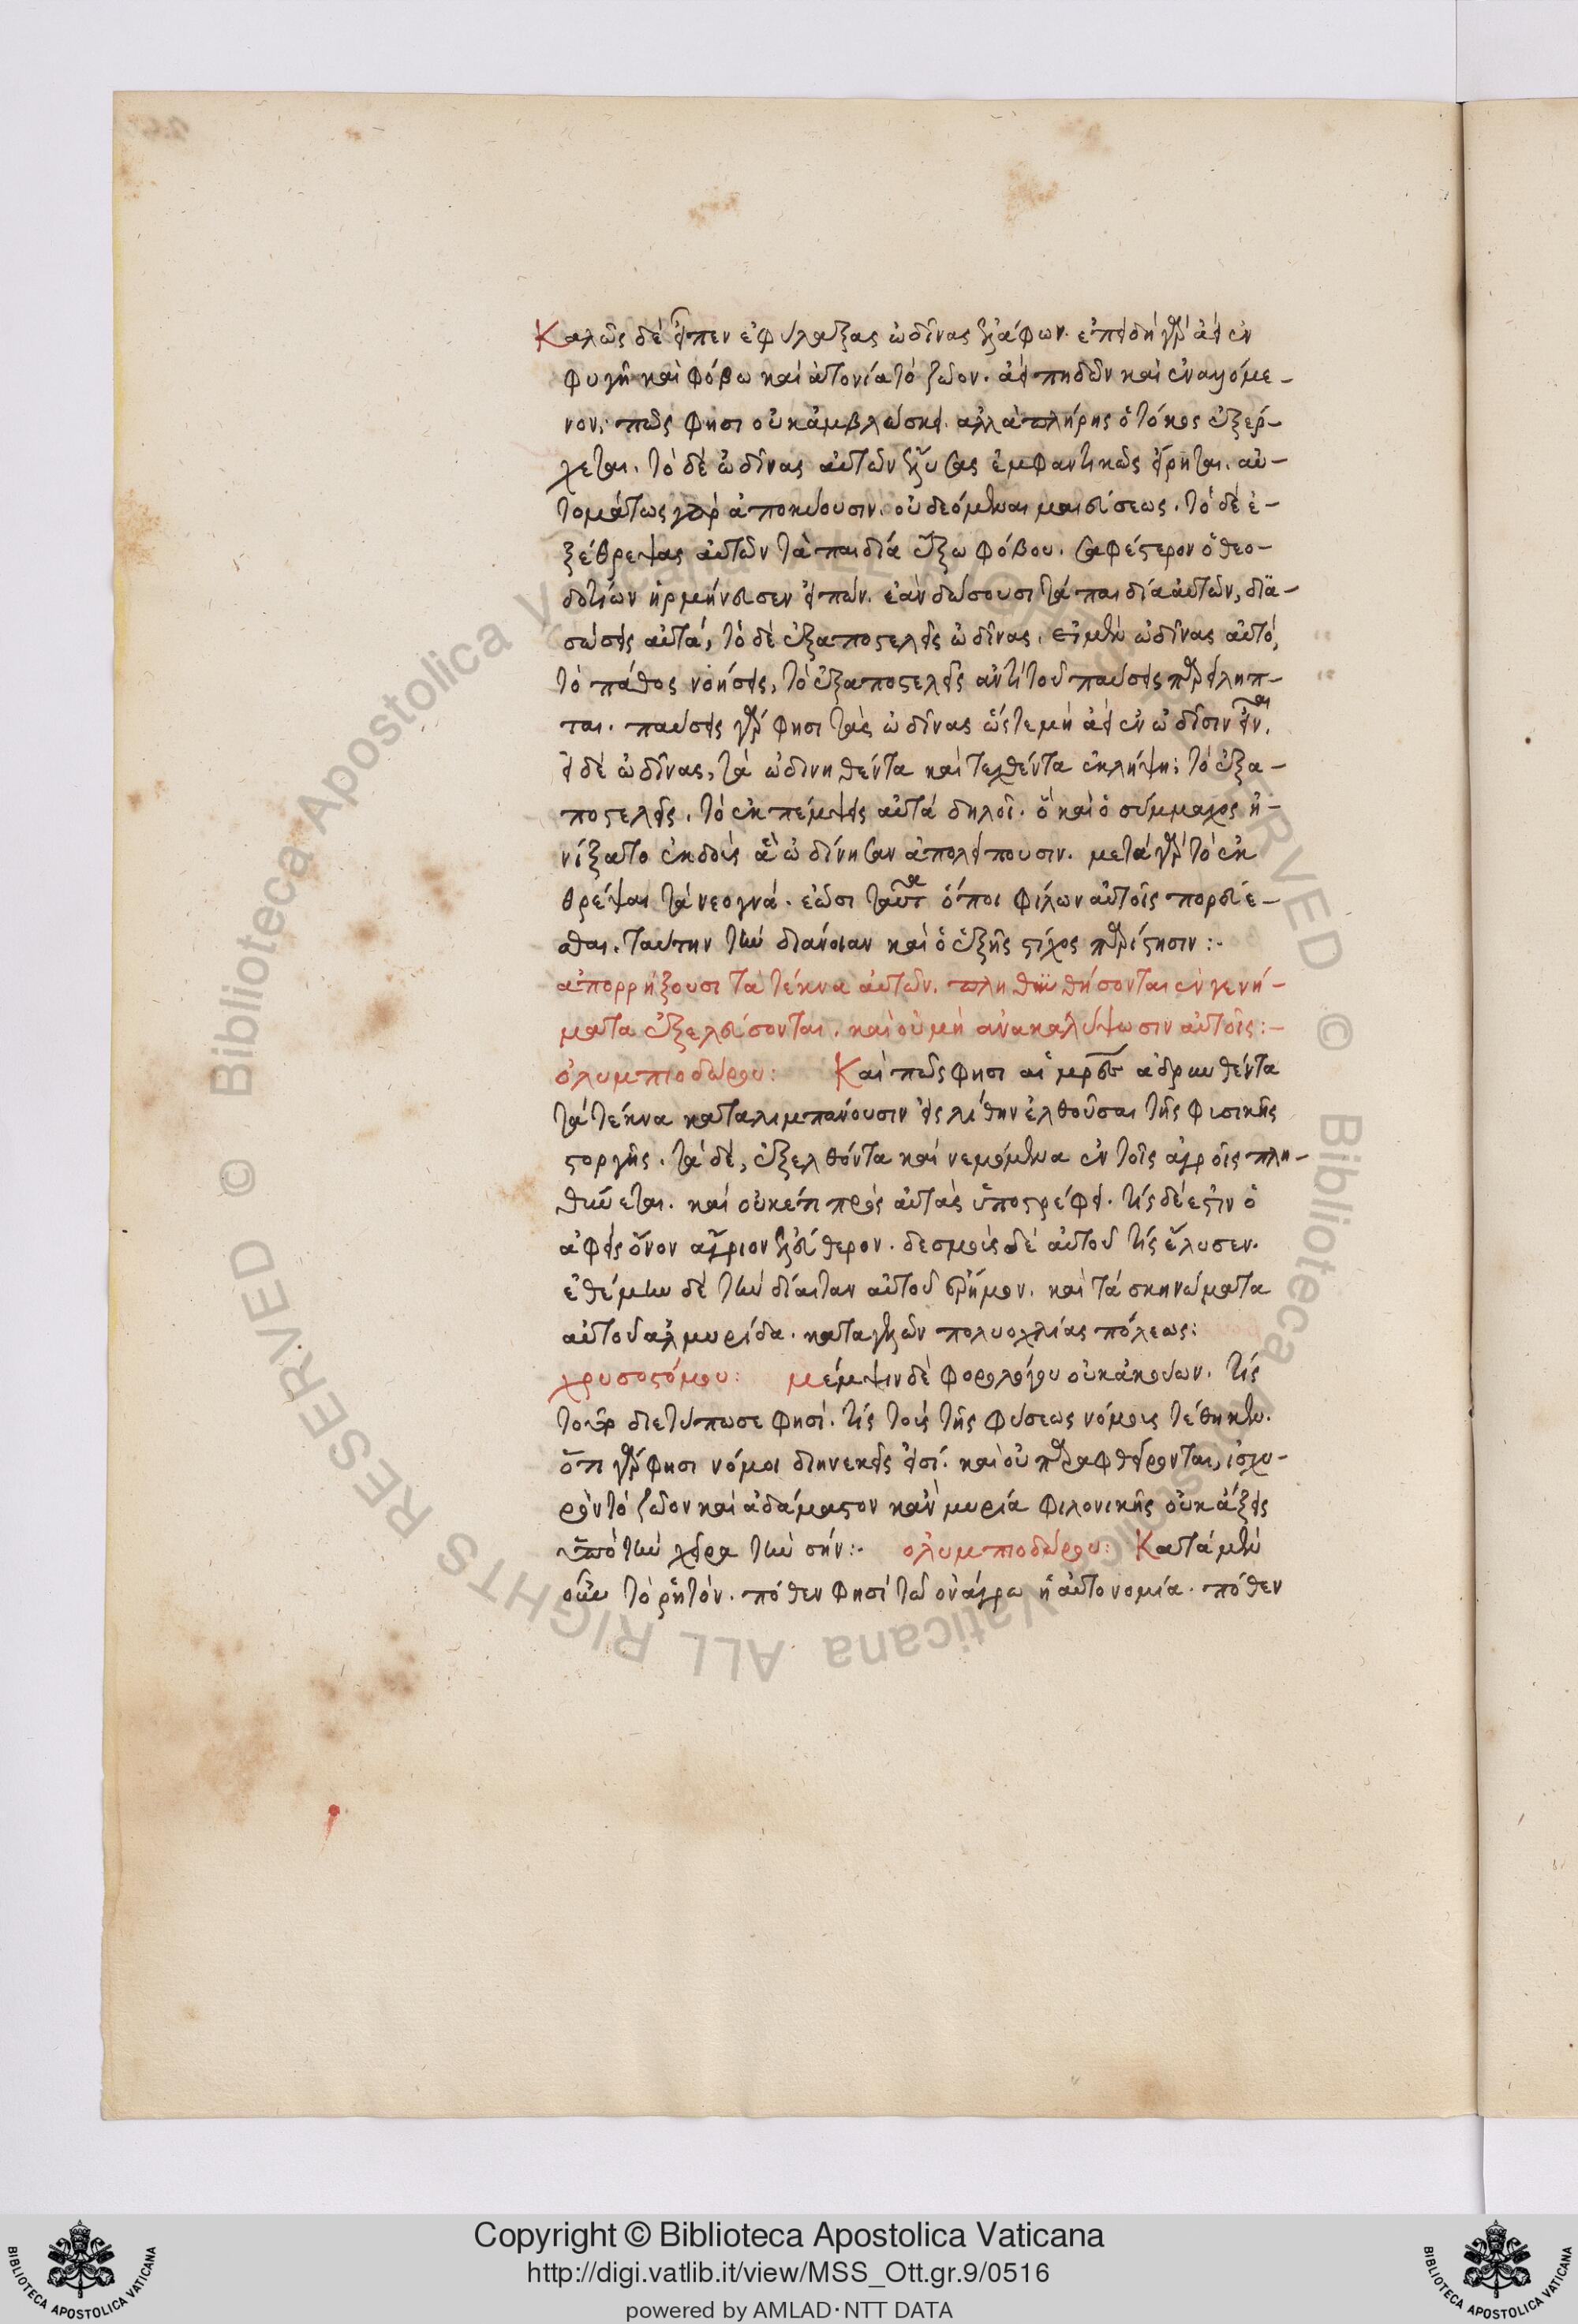 Καλῶς δὲ εἶπεν ἐφύλαξας ὠδῖνας ἐλάφων. ἐπειδὴ γὰρ ἀεὶ ἐν
φυγῆ καὶ φόβω καὶ ἀγωνία τὸ ζῶον. ἀεὶ πηδῶν καὶ ἐναγόμε-
νον, πῶς φησι οὐκ ἀμβλώσκει. ἀλλὰ πλήρης ὁ τόκος ἐξέρ-
χεται. τὸ δὲ ὠδῖνας αὐτῶν ἔλυσας ἐμφαντικῶς εἴρηται. αὐ-
τομάτως γὰρ ἀποκύουσιν. οὐ δεόμεναι μαιεύσεως. τὸ δὲ ἐ-
ξέθρεψας αὐτῶν τὰ παιδία ἔξω φόβου. σαφέστερον ὁ θεο-
δοτίων ἡρμήνευσεν εἰπών. ἐὰν δώσουσι τὰ παιδία αὐτῶν, δια-
σώσεις αὐτά, τὸ δὲ ἐξαποστελεῖς ὠδῖνας. εἰ μὲν ὠδῖνας αὐτό,
τὸ πάθος νοήσεις, τὸ ἐξαποστελεῖς ἀντὶ τοῦ παύσεις παρείληπ-
ται. παύσεις γάρ φησι τὰς ὠδῖνας ὥστε μὴ ἀεὶ ἐν ὠδῖσιν εἶναι.
εἰ δὲ ὠδῖνας, τὰ ὠδινηθέντα καὶ τεχθέντα ἐκλήψη; τὸ ἐξα-
ποστελεῖς. τὸ ἐκπέμψεις αὐτὰ δηλοῖ. ὃ καὶ ὁ σύμμαχος ἠ-
νίξατο ἐκδοὺς ἃ ὠδίνησαν ἀπολείπουσιν. μετὰ γὰρ τὸ ἐκ
θρέψαι τὰ νεογνά. ἐῶσι ταῦτα ὅποι φίλων αὐτοῖς πορεύε-
σθαι. ταύτην τὴν διάνοιαν καὶ ὁ ἑξῆς στίχος παρίστησιν:-
ἀπορρήξουσι τὰ τέκνα αὐτῶν. πληθυνθήσονται ἐν γενή-
ματα ἐξελεύσονται. καὶ οὐ μὴ ἀνακαλύψωσιν αὐτοῖς:-
ὀλυμπιοδώρου: Καὶ πῶς φησι αἱ μρες ἁδρυνθέντα
τὰ τέκνα καταλιμπάνουσιν εἰς λήθην ἐλθοῦσαι τῆς φισικῆς
στοργῆς. τὰ δέ, ἐξελθόντα καὶ νεμόμενα ἐν τοῖς ἀγροῖς πλη-
θύνεται. καὶ οὐκέτι πρὸς αὐτὰς ὑποστρέφει. τίς δέ ἐστιν ὁ
ἀφεὶς ὄνον ἄγριον ἐλεύθερον. δεσμοὺς δὲ αὐτοῦ τίς ἔλυσεν.
ἐθέμην δὲ τὴν δίαιταν αὐτοῦ ἔρημον. καὶ τὰ σκηνώματα
αὐτοῦ ἁλμυρίδα. καταγελῶν πολυοχλίας πόλεως:
χρυσοστόμου: μέμψιν δὲ φορολόγου οὐκ ἀκούων. τίς
διετύπωσε φησί. τίς τοὺς τῆς φύσεως νόμους τέθηκεν.
ὅτι γάρ φησι νόμοι διηνεκεῖς εἰσί. καὶ οὐ παραφθείρονται, ἰσχυ-
ρὸν τὸ ζῶον καὶ ἀδάμαστον κἂν μυρία φιλονικῆς οὐκ ἄξεις
ὑπὸ τὴν χεῖρα τὴν σήν:- ὀλυμπιοδώρου: Κατὰ μὲν
οὖν τὸ ῥητόν. πόθεν φησὶ τῶ ὀνάγρω ἡ αὐτονομία. πόθεν
Copyright © Biblioteca Apostolica Vaticana
http://digi.vatlib.it/view/MSS_Ott.gr.9/0516
powered by AMLAD·NTT DATA